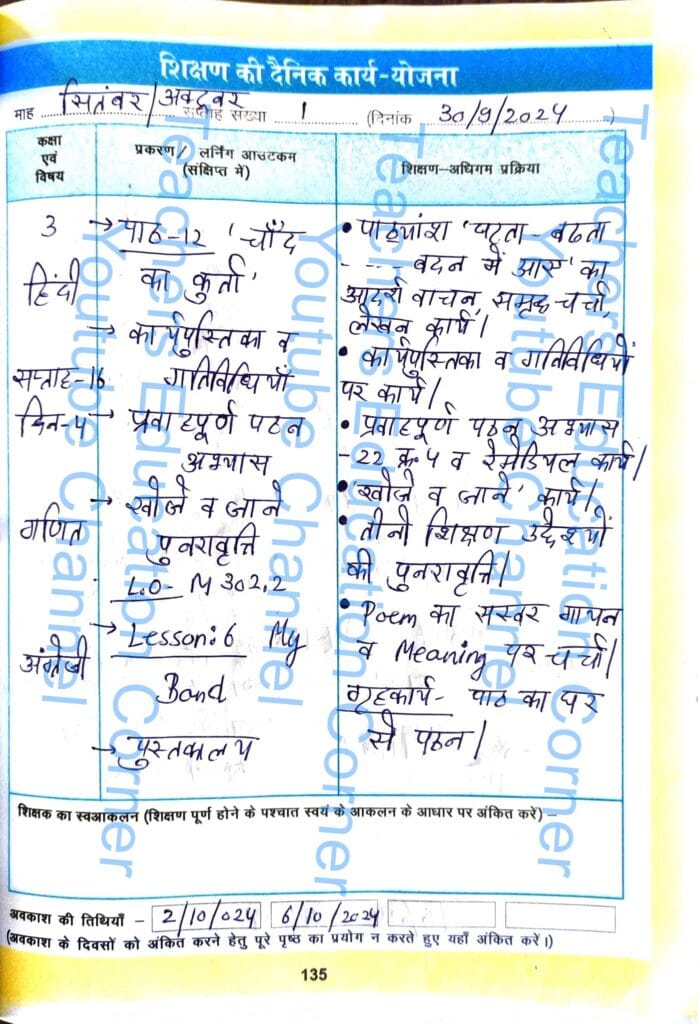 शिक्षण की दैनिक कार्य-योजना
माह सितंबर/अक्टूबर सप्ताह संख्या 1 (दिनांक 30/9/2024)
कक्षा एवं विषय
प्रकरण/ लर्निंग आउटकम (संक्षिप्त में)
शिक्षण-अधिगम प्रक्रिया
3
हिंदी
सप्ताह-16
दिन-4
गणित
अंग्रेजी
→ पाठ-12 'चाँद
का कुर्ता'
→ कार्यपुस्तिका व
गतिविधियाँ
→ प्रवाहपूर्ण पठन
अभ्यास
→ खोजें व जाने
पुनरावृत्ति
L.O- M 302.2
→ Lesson: 6 My
Band
→ पुस्तकालय
• पाठ्यांश 'घटता-बढता
---- बदन में आए' का
आदर्श वाचन, समूह चर्चा,
लेखन कार्य।
• कार्यपुस्तिका व गतिविधियों
पर कार्य।
• प्रवाहपूर्ण पठन अभ्यास
-22 क्र 4 व रेमेडियल कार्य।
• 'खोजें व जाने' कार्य।
• तीनो शिक्षण उद्देश्यों
की पुनरावृत्ति।
• Poem का सस्वर गायन
व Meaning पर चर्चा।
गृहकार्य- पाठ का घर
से पठन।
शिक्षक का स्वआकलन (शिक्षण पूर्ण होने के पश्चात स्वयं के आकलन के आधार पर अंकित करें) –
अवकाश की तिथियाँ – 2/10/024 6/10/2024
(अवकाश के दिवसों को अंकित करने हेतु पूरे पृष्ठ का प्रयोग न करते हुए यहाँ अंकित करें।)
135
Teachers Education Corner
Youtube Channel
Teachers Education Corner
Youtube Channel
Teachers Education Corner